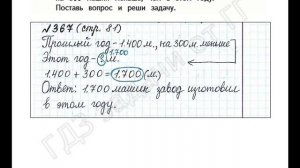 Поставь вопрос и реши задачу.
№367 (стр. 81)
Прошлый год - 1.400 м., на 300 м. меньше
Этот год - ? м. 1.700
1.400 + 300 = 1.700 (м.)
Ответ: 1.700 машин завод изготовил
в этом году.